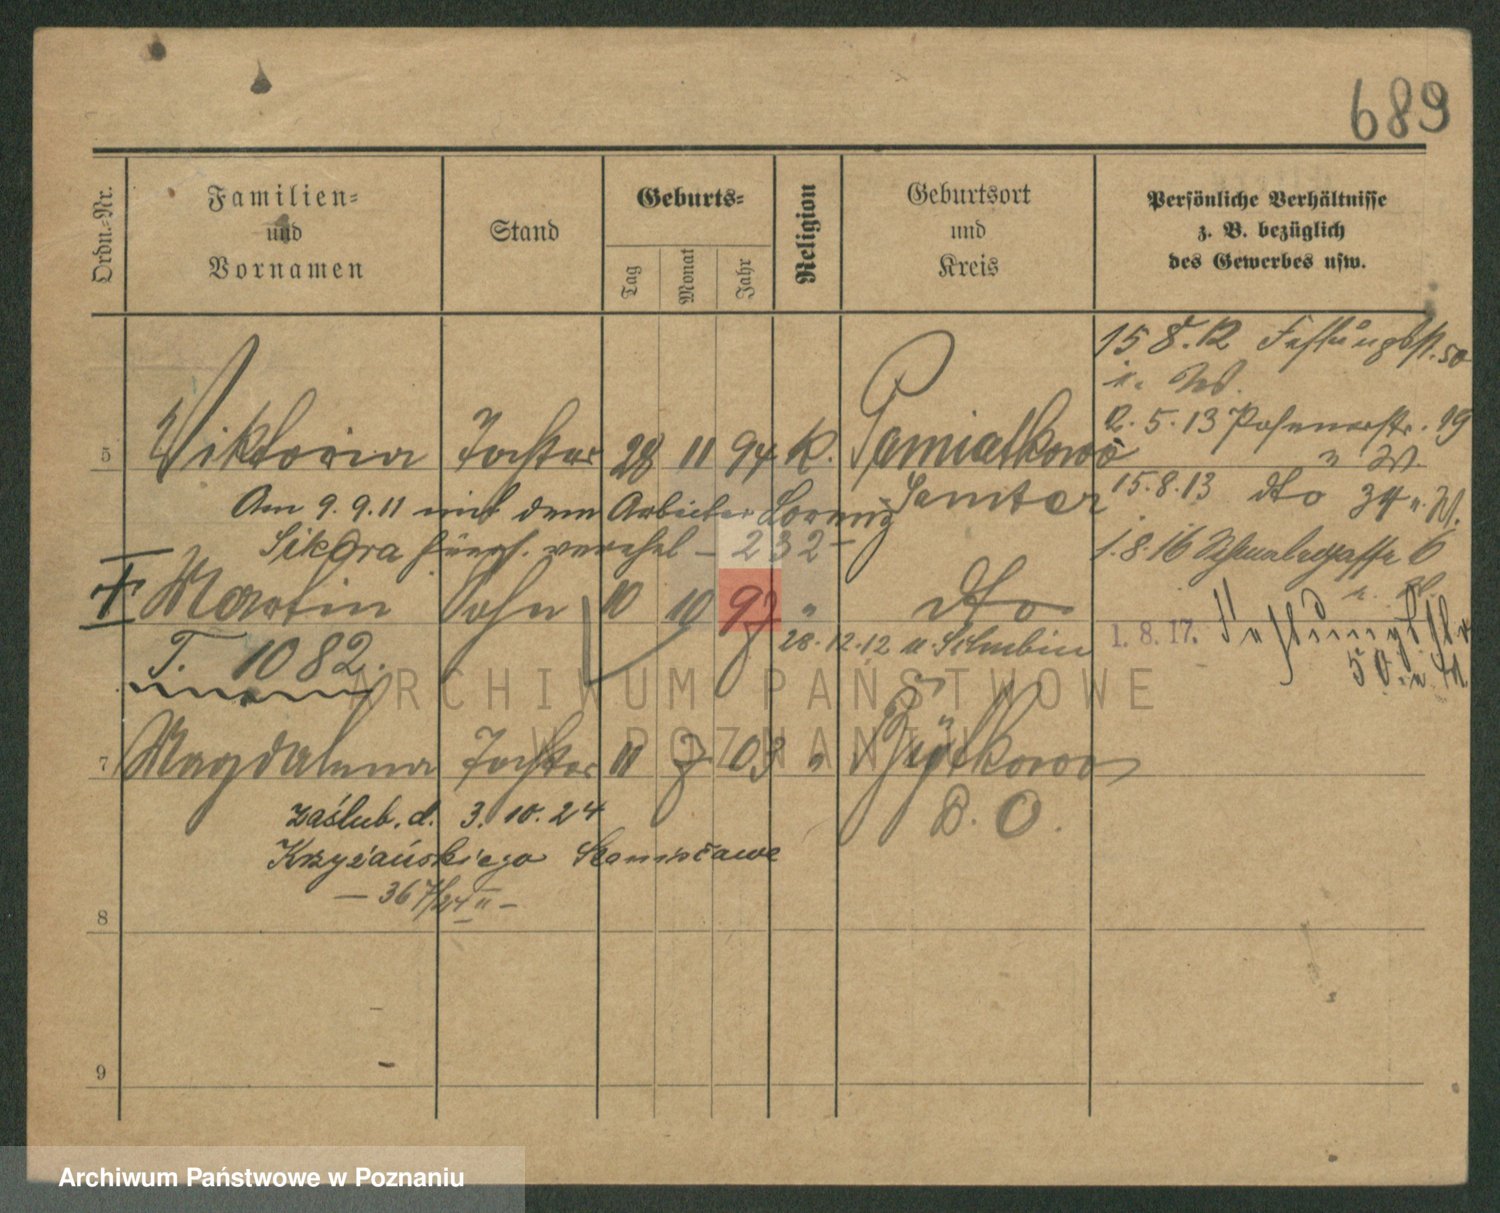 689
Ordn.-Nr.
Familien- und Vornamen
Stand
Geburts-
Tag
Monat
Jahr
Religion
Geburtsort und Kreis
Persönliche Verhältnisse
z. B. bezüglich
des Gewerbes usw.
15 8. 12 Festungsstr. 50
u. W.
5 Viktoria Tochter 28 11 94 K. Pamiatkowo
2. 5. 13 Posenerstr. 19
u W.
Samter 15. 8. 13 dto 34 u. W.
Am 9. 9. 11 mit dem Arbeiter Lorenz
Sikora verehel – 232 –
1. 8. 16 6
Martin Sohn 10 10 97 " dto
28. 12. 12 u. Schubin
T. 1082.
1. 8. 17. Festungsstr
50 u. W.
7 Magdalena Tochter 11 7 03 "
P. O.
zaślub. d. 3. 10. 24
Krzyżańskiego Stanisława
– 367/24 II –
8
9
ARCHIWUM PAŃSTWOWE
W POZNANIU
Archiwum Państwowe w Poznaniu